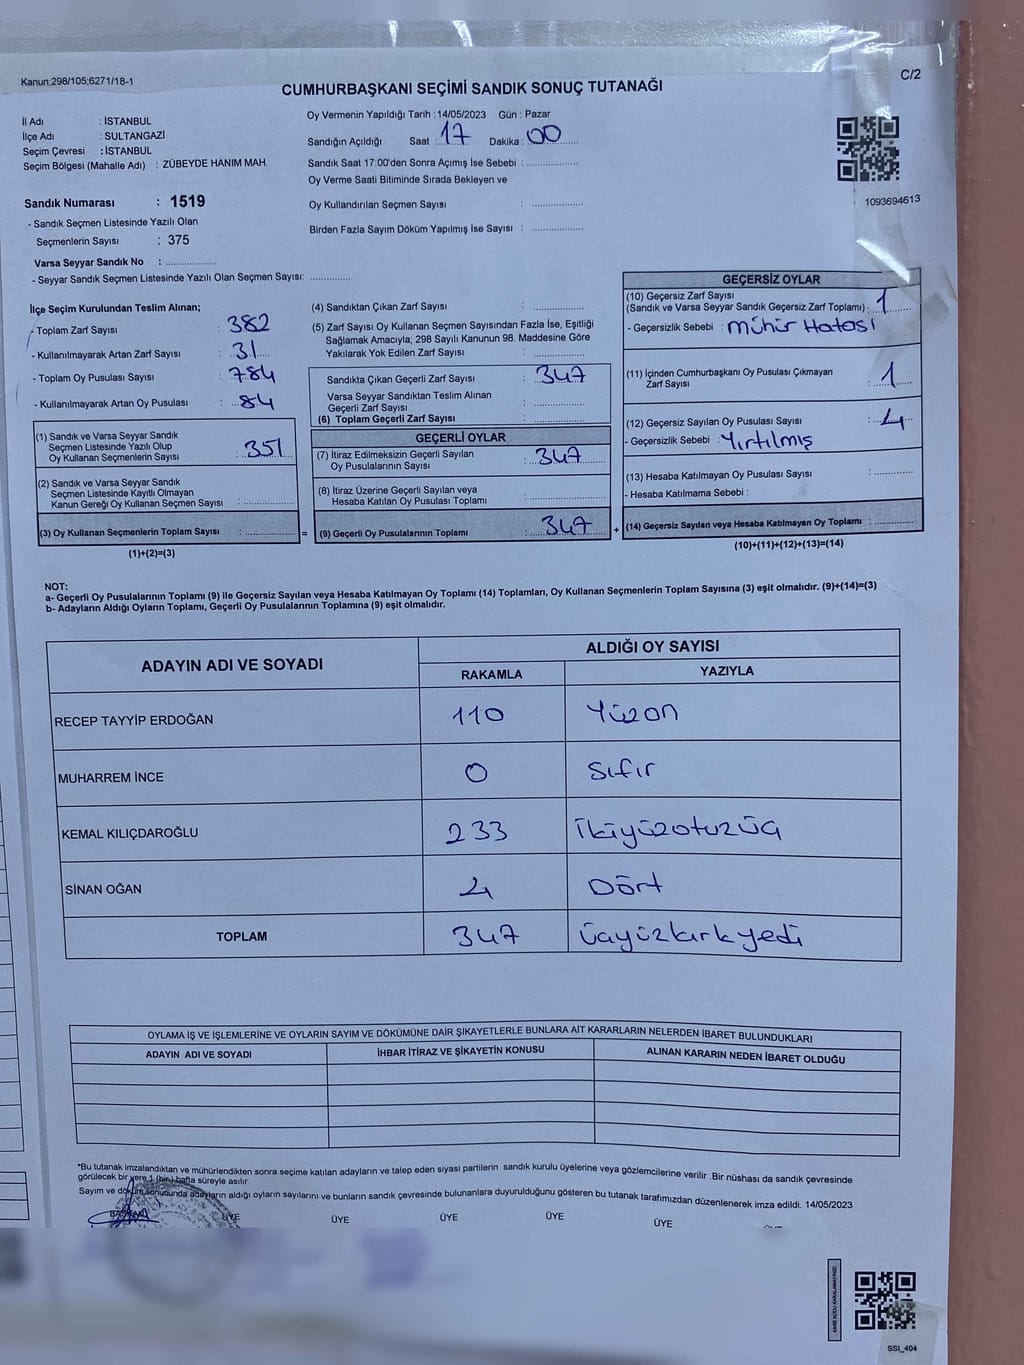 Kanun:298/105;6271/18-1
C/2
CUMHURBAŞKANI SEÇİMİ SANDIK SONUÇ TUTANAĞI
İl Adı : İSTANBUL
İlçe Adı : SULTANGAZİ
Seçim Çevresi : İSTANBUL
Seçim Bölgesi (Mahalle Adı) : ZÜBEYDE HANIM MAH.
Sandık Numarası : 1519
- Sandık Seçmen Listesinde Yazılı Olan
Seçmenlerin Sayısı : 375
Varsa Seyyar Sandık No : ................
- Seyyar Sandık Seçmen Listesinde Yazılı Olan Seçmen Sayısı: ............
Oy Vermenin Yapıldığı Tarih : 14/05/2023 Gün : Pazar
Sandığın Açıldığı Saat : 17 Dakika : 00
Sandık Saat 17:00'den Sonra Açımış İse Sebebi : ................
Oy Verme Saati Bitiminde Sırada Bekleyen ve
Oy Kullandırılan Seçmen Sayısı : ................
Birden Fazla Sayım Döküm Yapılmış İse Sayısı : ................
1093694613
İlçe Seçim Kurulundan Teslim Alınan;
- Toplam Zarf Sayısı : 382
- Kullanılmayarak Artan Zarf Sayısı : 31
- Toplam Oy Pusulası Sayısı : 784
- Kullanılmayarak Artan Oy Pusulası : 84
(1) Sandık ve Varsa Seyyar Sandık
Seçmen Listesinde Yazılı Olup
Oy Kullanan Seçmenlerin Sayısı : 351
(2) Sandık ve Varsa Seyyar Sandık
Seçmen Listesinde Kayıtlı Olmayan
Kanun Gereği Oy Kullanan Seçmen Sayısı : ................
(3) Oy Kullanan Seçmenlerin Toplam Sayısı : ................ =
(1)+(2)=(3)
(4) Sandıktan Çıkan Zarf Sayısı : ................
(5) Zarf Sayısı Oy Kullanan Seçmen Sayısından Fazla İse, Eşitliği
Sağlamak Amacıyla; 298 Sayılı Kanunun 98. Maddesine Göre
Yakılarak Yok Edilen Zarf Sayısı : ................
Sandıkta Çıkan Geçerli Zarf Sayısı : 347
Varsa Seyyar Sandıktan Teslim Alınan
Geçerli Zarf Sayısı : ................
(6) Toplam Geçerli Zarf Sayısı : ................
GEÇERLİ OYLAR
(7) İtiraz Edilmeksizin Geçerli Sayılan
Oy Pusulalarının Sayısı : 347
(8) İtiraz Üzerine Geçerli Sayılan veya
Hesaba Katılan Oy Pusulası Toplamı : ................
(9) Geçerli Oy Pusulalarının Toplamı : 347 +
GEÇERSİZ OYLAR
(10) Geçersiz Zarf Sayısı
(Sandık ve Varsa Seyyar Sandık Geçersiz Zarf Toplamı) : 1
- Geçersizlik Sebebi : Mühür Hatası
(11) İçinden Cumhurbaşkanı Oy Pusulası Çıkmayan
Zarf Sayısı : 1
(12) Geçersiz Sayılan Oy Pusulası Sayısı : 4
- Geçersizlik Sebebi : Yırtılmış
(13) Hesaba Katılmayan Oy Pusulası Sayısı : ............
- Hesaba Katılmama Sebebi :
(14) Geçersiz Sayılan veya Hesaba Katılmayan Oy Toplamı : ............
(10)+(11)+(12)+(13)=(14)
NOT:
a- Geçerli Oy Pusulalarının Toplamı (9) ile Geçersiz Sayılan veya Hesaba Katılmayan Oy Toplamı (14) Toplamları, Oy Kullanan Seçmenlerin Toplam Sayısına (3) eşit olmalıdır. (9)+(14)=(3)
b- Adayların Aldığı Oyların Toplamı, Geçerli Oy Pusulalarının Toplamına (9) eşit olmalıdır.
ADAYIN ADI VE SOYADI
ALDIĞI OY SAYISI
RAKAMLA YAZIYLA
RECEP TAYYİP ERDOĞAN 110 Yüzon
MUHARREM İNCE 0 Sıfır
KEMAL KILIÇDAROĞLU 233 İkiyüzotuzüç
SİNAN OĞAN 4 Dört
TOPLAM 347 Üçyüzkırkyedi
OYLAMA İŞ VE İŞLEMLERİNE VE OYLARIN SAYIM VE DÖKÜMÜNE DAİR ŞİKAYETLERLE BUNLARA AİT KARARLARIN NELERDEN İBARET BULUNDUKLARI
ADAYIN ADI VE SOYADI İHBAR İTİRAZ VE ŞİKAYETİN KONUSU ALINAN KARARIN NEDEN İBARET OLDUĞU
*Bu tutanak imzalandıktan ve mühürlendikten sonra seçime katılan adayların ve talep eden siyasi partilerin sandık kurulu üyelerine veya gözlemcilerine verilir .Bir nüshası da sandık çevresinde
görülecek bir yere 1 (bin) hafta süreyle asılır.
Sayım ve döküm sonusunda adayların aldığı oyların sayılarını ve bunların sandık çevresinde bulunanlara duyurulduğunu gösteren bu tutanak tarafımızdan düzenlenerek imza edildi. 14/05/2023
BAŞKAN ÜYE ÜYE ÜYE ÜYE ÜYE
SSI_404